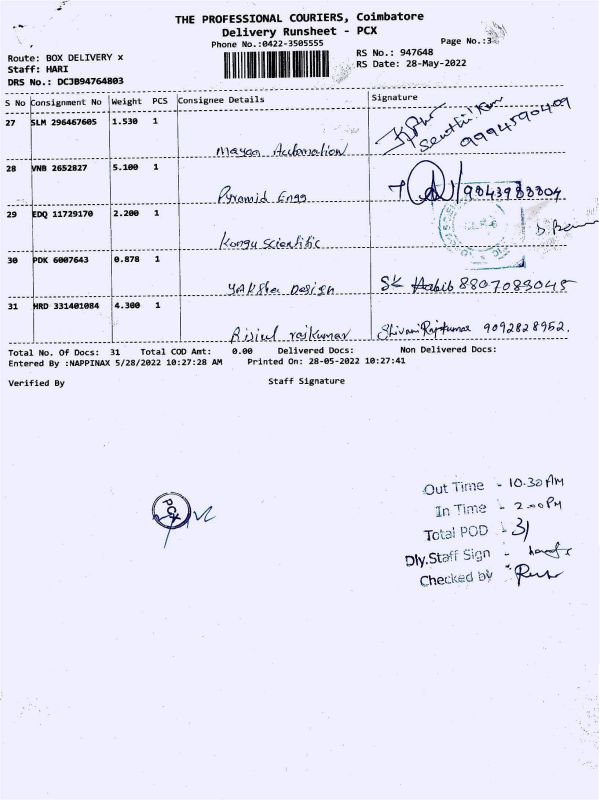 THE PROFESSIONAL COURIERS, Coimbatore
Delivery Runsheet - PCX
Phone No.:0422-3505555
Page No.:3
Route: BOX DELIVERY x
RS No.: 947648
Staff: HARI
RS Date: 28-May-2022
DRS No.: DCJB94764803
S No Consignment No Weight PCS Consignee Details Signature
27 SLM 296467605 1.530 1
Senthil Kum
9994590409
Mayaa Automation
28 VNB 2652827 5.100 1
Pyramid Engg
9843988804
29 EDQ 11729170 2.200 1
Kongu Scientific
30 PDK 6007643 0.878 1
Design SK Habib 8807083045
31 HRD 331401084 4.300 1
rajkumar Shivani Rajkumar 9092828952.
Total No. Of Docs: 31 Total COD Amt: 0.00 Delivered Docs: Non Delivered Docs:
Entered By :NAPPINAX 5/28/2022 10:27:28 AM Printed On: 28-05-2022 10:27:41
Verified By Staff Signature
PCX
Out Time - 10.30 AM
In Time - 2.00 PM
Total POD - 31
Dly.Staff Sign -
Checked by